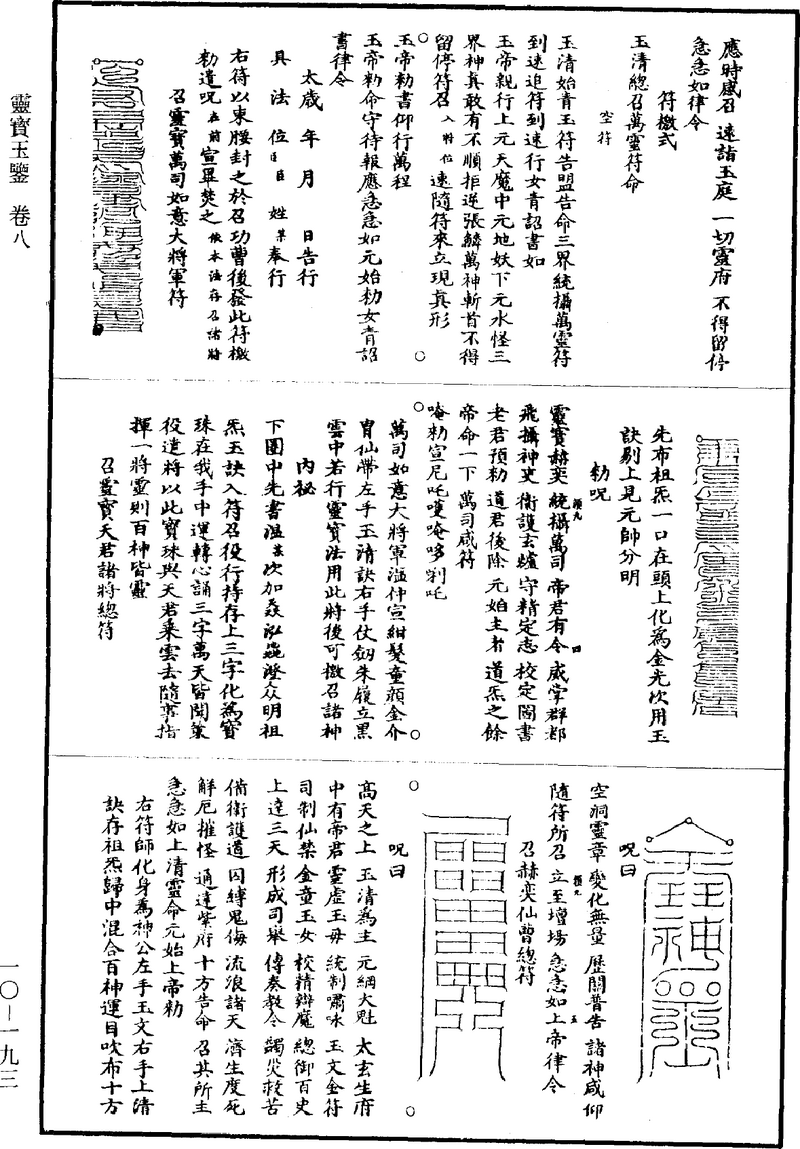 應時感召　速詣玉庭　一切靈府　不得留停
急急如律令
符檄式
玉清總召萬靈符命
空符
玉清始青玉符告盟告命三界統攝萬靈符
到速追符到速行女青詔書如
玉帝親行上元天魔中元地妖下元水怪三
界神真敢有不順拒逆張鱗萬神斬首不得
留停符召入將位速隨符來立現真形
玉帝勅書仰行萬程
玉帝勅命守待報應急急如元始勅女青詔
書律令
太歲　年　月　日告行
具法位臣　姓某奉行
右符以朱腰封之於召功曹後發此符檄
勅遣呪在前宣畢焚之依本法存召諸將
召靈寶萬司如意大將軍符
先布祖炁一口在頭上化為金光次用玉
訣剔上見元帥分明
勅呪
靈寶赫奕　統攝萬司　帝君有令　威掌群都
飛攝神吏　衛護玄壚　守精定志　校定圖書
老君預勅　道君後除　元始主者　道炁之餘
帝命一下　萬司咸符
唵勅宣尼吒囉唵哆利吒
萬司如意大將軍溫仲宣紺髮童顏金介
胄仙帶左手玉清訣右手仗劒朱履立黑
雲中若行靈寶法用此將後可檄召諸神
內祕
下圈中先書溫某次加猋泓澄眾明祖
炁玉訣入符召役行持存上三字化為寶
珠在我手中運轉心誦三字萬天皆聞策
役遣將以此寶珠與天君乘雲去隨算指
揮一將靈則百神皆靈
召靈寶天君諸將總符
呪曰
空洞靈章　變化無量　歷關普告　諸神咸仰
隨符所召　立至壇場　急急如上帝律令
召赫奕仙曹總符
呪曰
高天之上　玉清為主　元綱大魁　太玄生府
中有帝君　靈虛玉毋　統制嘯咏　玉文金符
司制仙禁　金童玉女　校精辯魔　總御百史
上達三天　形成司舉　傳奏教令　蠲災救苦
備衛護道　囚縛鬼侮　流浪諸天　濟生度死
解厄摧怪　通達紫府　十方告命　召其所主
急急如上清靈命元始上帝勅
右符師化身為神公左手玉文右手上清
訣存祖炁歸中混合百神運目吹布十方
靈寶玉鑒　卷八
一〇—一九三